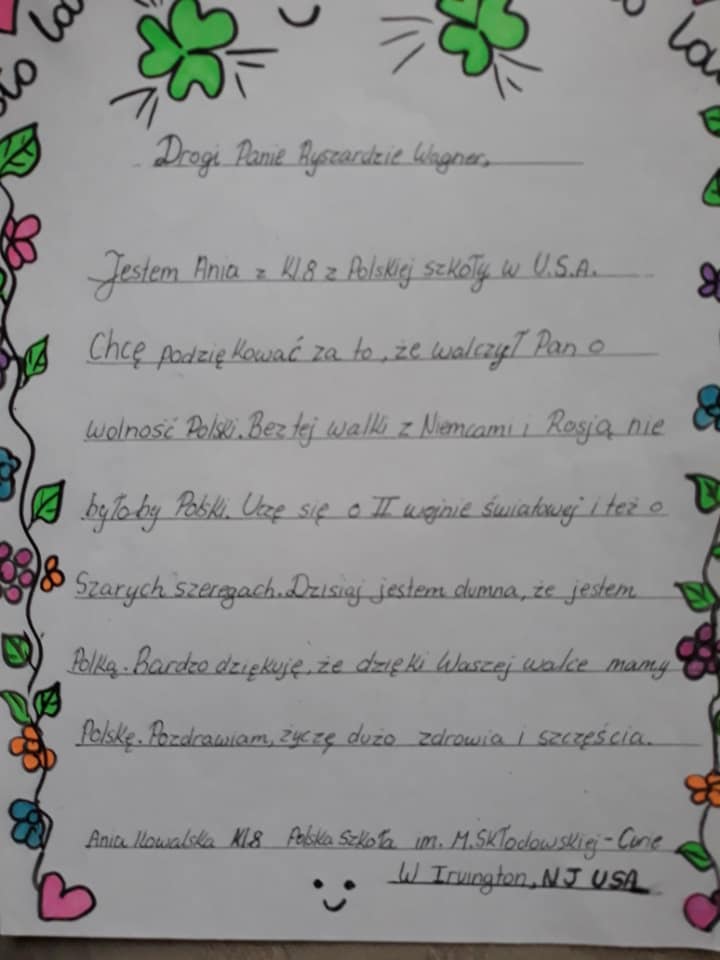 sto la
la
Drogi Panie Ryszardzie Wagner,
Jestem Ania z Kl.8 z Polskiej szkoły w U.S.A.
Chcę podziękować za to, że walczył Pan o
wolność Polski. Bez tej walki z Niemcami i Rosją nie
byłoby Polski. Uczę się o II wojnie światowej i też o
Szarych szeregach. Dzisiaj jestem dumna, że jestem
Polką. Bardzo dziękuję, że dzięki Waszej walce mamy
Polskę. Pozdrawiam, życzę dużo zdrowia i szczęścia.
Ania Kowalska Kl.8 Polska Szkoła im. M. Skłodowskiej-Curie
W Irvington, NJ USA